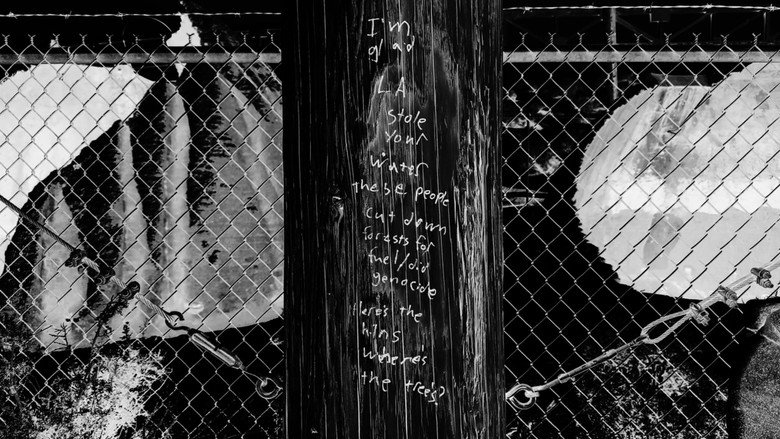 I'm
glad
LA
stole
your
water
these people
cut down
forests for
fuel/did
genocide
Here's the
kilns
where's
the trees?